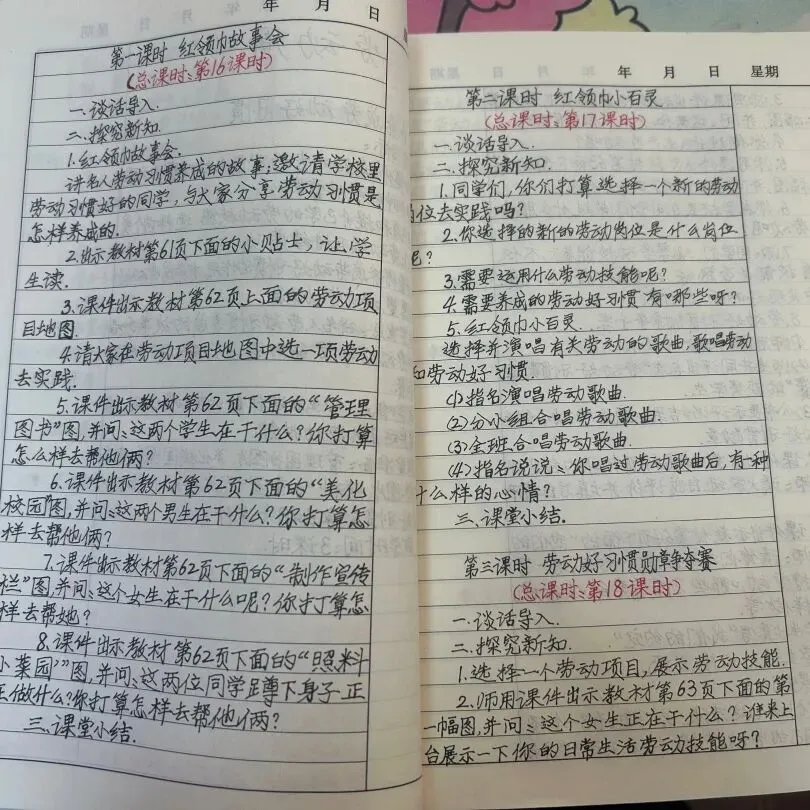 年 月 日
第一课时 红领巾故事会
(总课时:第16课时)
一.谈话导入.
二.探究新知.
1.红领巾故事会.
讲名人劳动习惯养成的故事;邀请学校里
劳动习惯好的同学,与大家分享劳动习惯是
怎样养成的.
2.出示教材第61页下面的小贴士,让学
生读.
3.课件出示教材第62页上面的劳动项
目地图.
4.请大家在劳动项目地图中选一项劳动
去实践.
5.课件出示教材第62页下面的“管理
图书”图,并问:这两个学生在干什么?你打算
怎么样去帮他俩?
6.课件出示教材第62页下面的“美化
校园”图,并问:这两个男生在干什么?你打算怎
样去帮他俩?
7.课件出示教材第62页下面的“制作宣传
栏”图,并问:这个女生在干什么呢?你打算怎
样去帮她?
8.课件出示教材第62页下面的“照料
小菜园”图,并问:这两位同学蹲下身子正
做什么?你打算怎样去帮他俩?
三.课堂小结.
年 月 日 星期
第二课时 红领巾小百灵
(总课时:第17课时)
一.谈话导入.
二.探究新知.
1.同学们,你们打算选择一个新的劳动
位去实践吗?
2.你选择的新的劳动岗位是什么岗位
呢?
3.需要运用什么劳动技能呢?
4.需要养成的劳动好习惯有哪些呀?
5.红领巾小百灵.
选择并演唱有关劳动的歌曲,歌唱劳动
和劳动好习惯.
(1)指名演唱劳动歌曲.
(2)分小组合唱劳动歌曲.
(3)全班合唱劳动歌曲.
(4)指名说说:你唱过劳动歌曲后,有一种
什么样的心情?
三.课堂小结.
第三课时 劳动好习惯勋章争夺赛
(总课时:第18课时)
一.谈话导入.
二.探究新知.
1.选择一个劳动项目,展示劳动技能.
2.师用课件出示教材第63页下面的第
一幅图,并问:这个女生正在干什么?谁来上
台展示一下你的日常生活劳动技能呀?